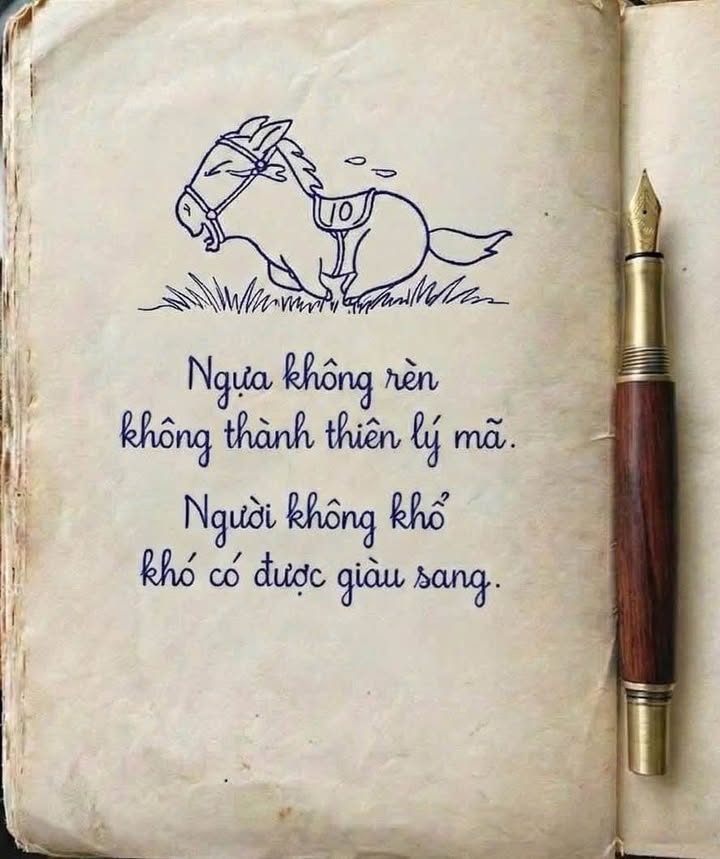 10
Ngựa không rèn
không thành thiên lý mã.
Người không khổ
khó có được giàu sang.